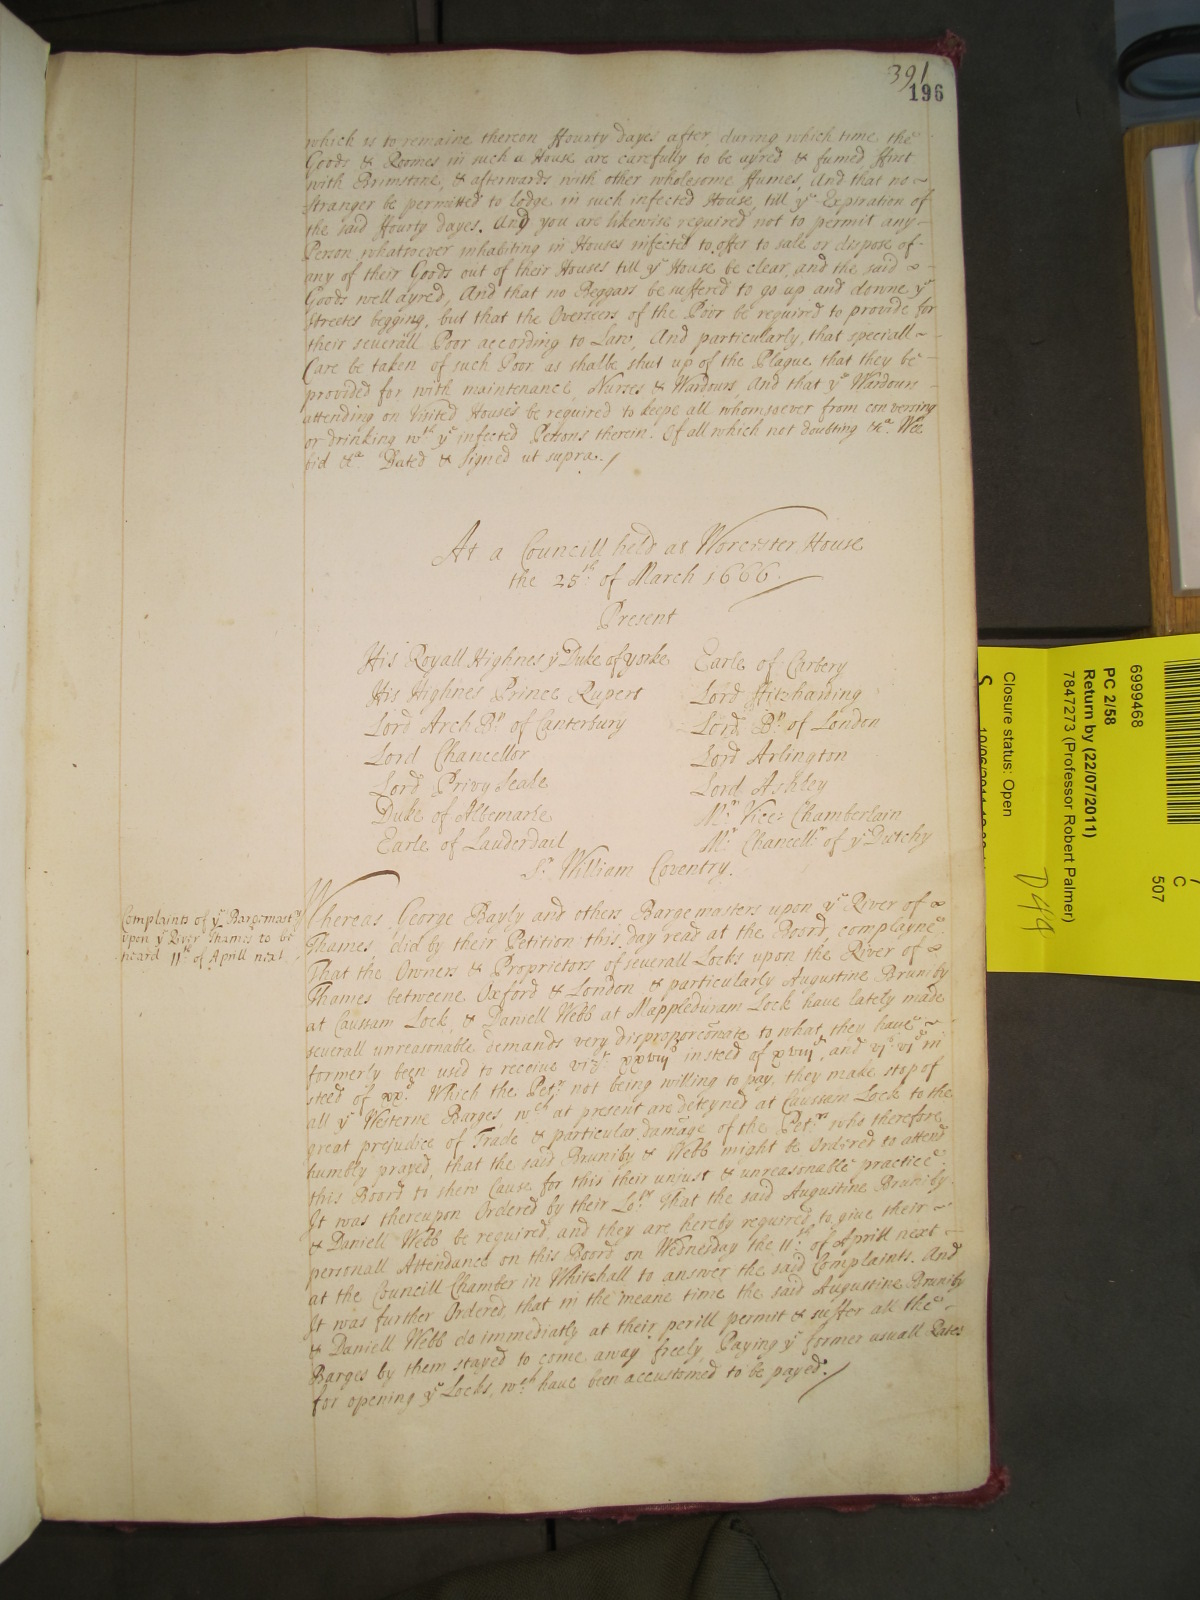 391
196
which is to remaine thereon ffourty dayes after, during which time the
Goods & Roomes in such a House are carefully to be ayred & fumed ffirst
with Brimstone, & afterwards with other wholesome ffumes, And that no
stranger be permitted to lodge in such infected House, till yᵉ Expiration of
the said ffourty dayes. And you are likewise required not to permit any
Person whatsoever inhabiting in Houses infected to offer to sale or dispose of
any of their Goods out of their Houses till yᵉ House be clear, and the said
Goods well ayred, And that no Beggars be suffered to go up and downe yᵉ
streetes begging, but that the Overseers of the Poor be required to provide for
their severall Poor according to Law, And particularly, that speciall
Care be taken of such Poor as shalbe shut up of the Plague that they be
provided for with maintenance, Nurses & Wardours, And that yᵉ Wardours
attending on Visited Houses be required to keepe all whomsoever from conversing
or drinking wᵗʰ yᵉ infected Persons therein. Of all which not doubting &cᵃ. Wee
bid &cᵃ Dated & signed ut supra.
At a Councill held at Worcester House
the 25ᵗʰ of March 1666.
Present
His Royall Highnes yᵉ Duke of Yorke
His Highnes Prince Rupert
Lord Arch Bᵖ of Canterbury
Lord Chancellor
Lord Privy Seale
Duke of Albemarle
Earle of Lauderdail
Earle of Carbery
Lord ffitzharding
Lord Bᵖ of London
Lord Arlington
Lord Ashley
Mʳ Vice Chamberlain
Mʳ Chancellʳ of yᵉ Dutchy
Sʳ William Coventry.
Complaints of yᵉ Bargemastʳˢ
upon yᵉ River Thames to be
heard 11ᵗʰ of Aprill next
Whereas George Bayly and others Bargemasters upon yᵉ River of
Thames, did by their Petition this day read at the Board, complayne
That the Owners & Proprietors of severall Locks upon the River of
Thames betweene Oxford & London & particularly Augustine Bruniby
at Caussam Lock, & Daniell Webb at Mappleduram Lock have lately made
severall unreasonable demands very disproporc̃onate to what they have
formerly been used to receive vizᵗ xxviijᵈ insteed of xviijᵈ, and vjˢ vjᵈ in
steed of xxᵈ. Which the Petʳˢ not being willing to pay, they make stop of
all yᵉ Westerne Barges, wᶜʰ at present are deteyned at Caussam Lock to the
great prejudice of Trade & particular damage of the Petʳˢ who therefore
humbly prayed, that the said Bruniby & Webb might be Ordered to attend
this Board to shew Cause for this their unjust & unreasonable practice.
It was thereupon Ordered by their Loᵖˢ That the said Augustine Bruniby
& Daniell Webb be required, and they are hereby required to give their
personall Attendance on this Board on Wednesday the 11ᵗʰ of Aprill next
at the Councill Chamber in Whitehall to answer the said Complaints. And
It was further Ordered, that in the meane time the said Augustine Bruniby
& Daniell Webb do immediatly at their perill permit & suffer all the
Barges by them stayed to come away freely Paying yᵉ former usuall Rates
for opening yᵉ Locks, wᶜʰ have been accustomed to be payed.
6999468
PC 2/58
Return by (22/07/2011)
7847273 (Professor Robert Palmer)
Closure status: Open
C
507
D49